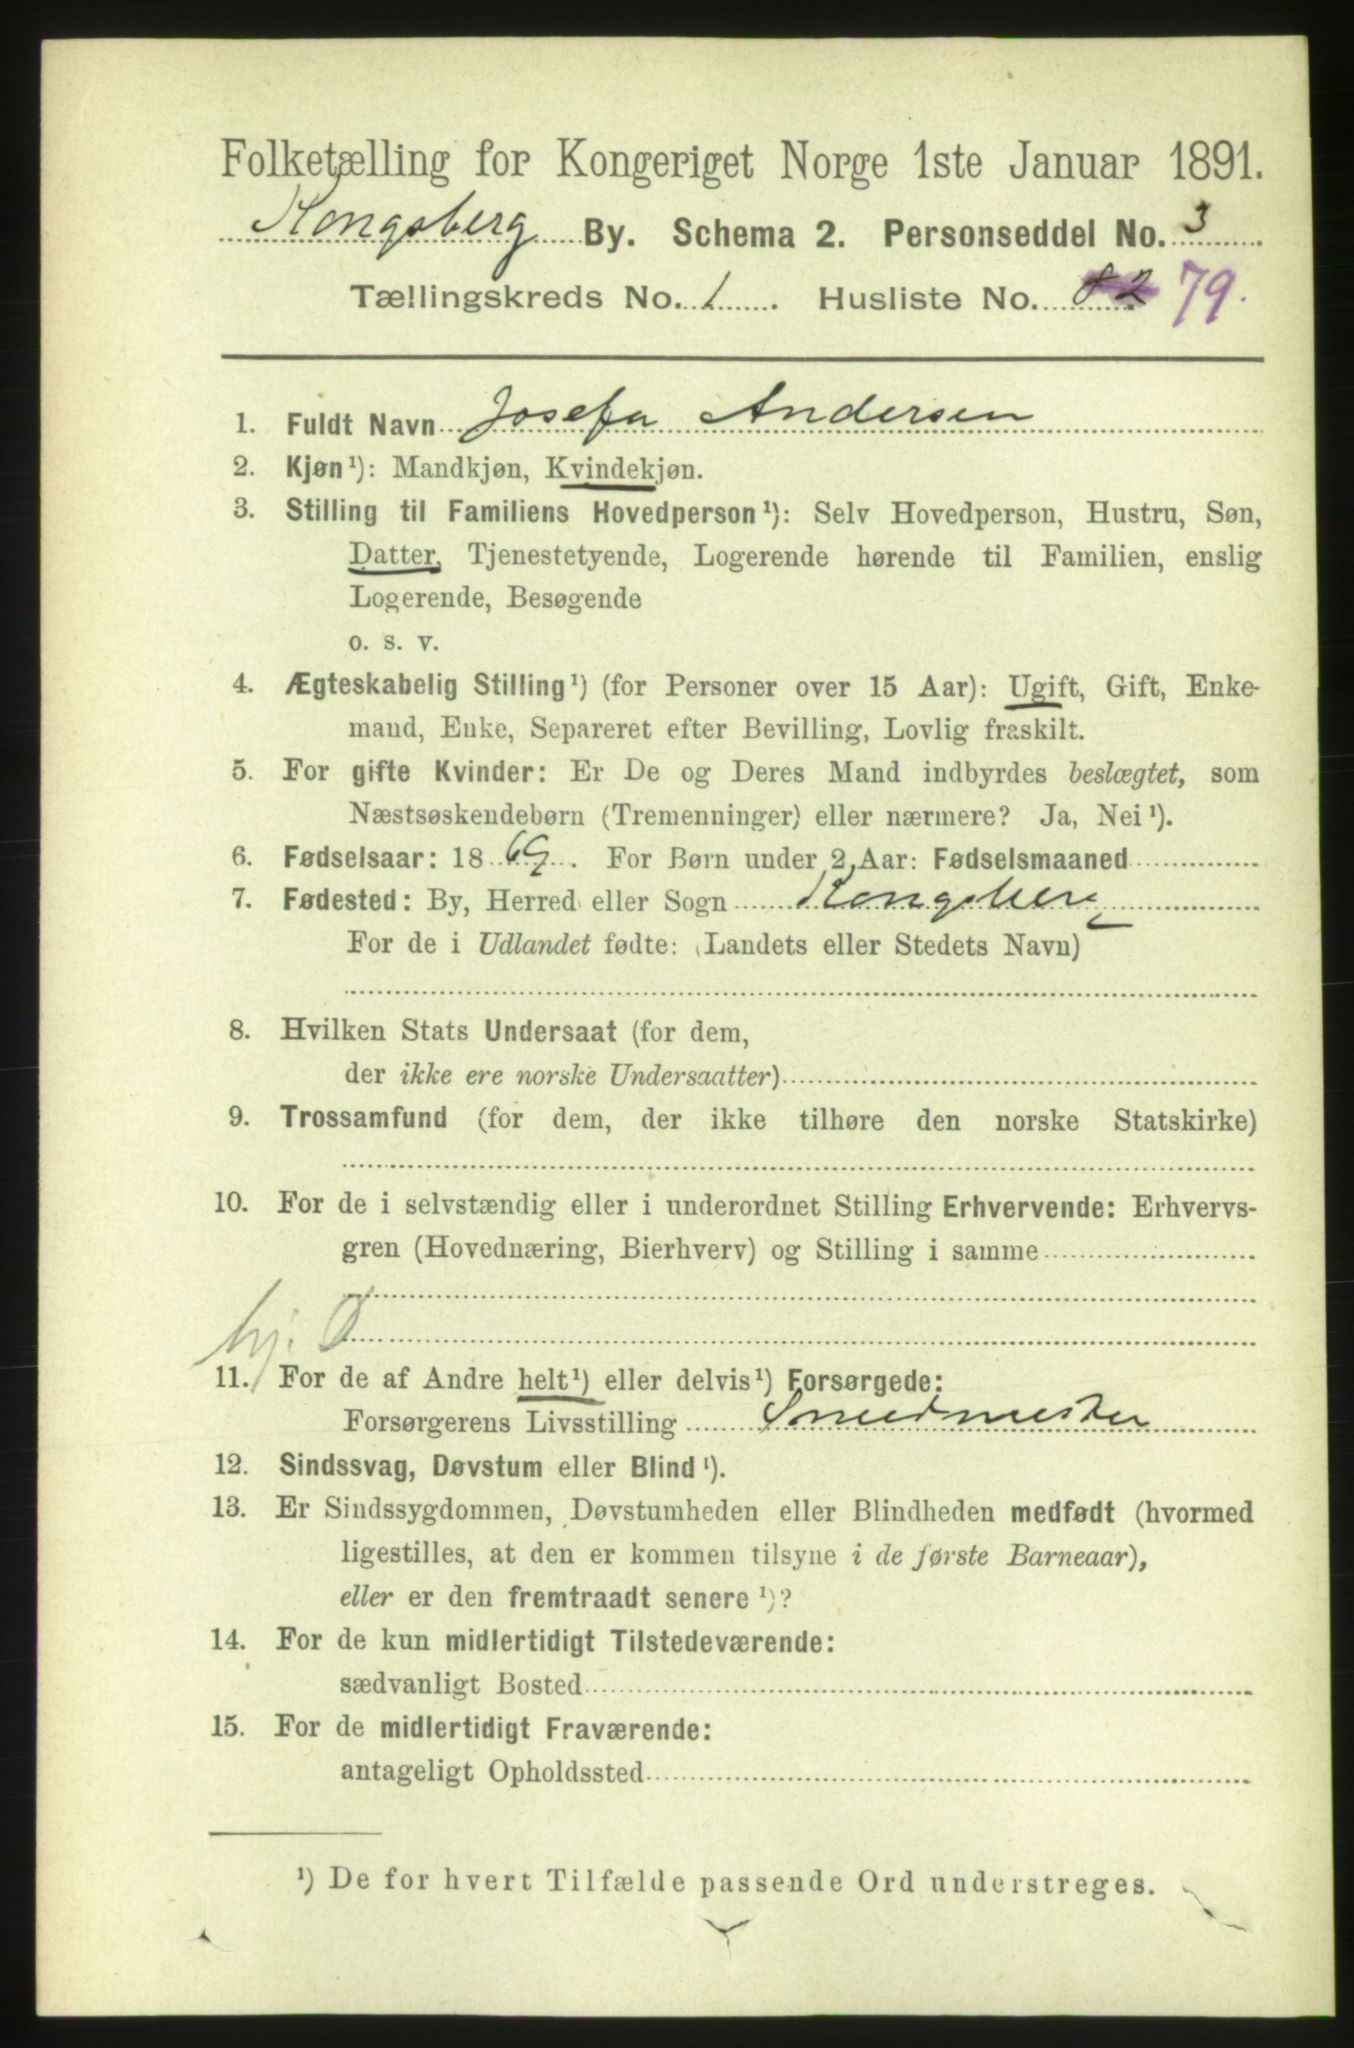 Folketælling for Kongeriget Norge 1ste Januar 1891.
Kongsberg By. Schema 2. Personseddel No. 3
Tællingskreds No. 1. Husliste No. 82 79.
1. Fuldt Navn Josefa Andersen
2. Kjøn¹): Mandkjøn, Kvindekjøn.
3. Stilling til Familiens Hovedperson¹): Selv Hovedperson, Hustru, Søn,
Datter, Tjenestetyende, Logerende hørende til Familien, enslig
Logerende, Besøgende
o. s. v.
4. Ægteskabelig Stilling¹) (for Personer over 15 Aar): Ugift, Gift, Enke-
mand, Enke, Separeret efter Bevilling, Lovlig fraskilt.
5. For gifte Kvinder: Er De og Deres Mand indbyrdes beslægtet, som
Næstsøskendebørn (Tremenninger) eller nærmere? Ja, Nei¹).
6. Fødselsaar: 1869. For Børn under 2 Aar: Fødselsmaaned
7. Fødested: By, Herred eller Sogn Kongsberg
For de i Udlandet fødte: (Landets eller Stedets Navn)
8. Hvilken Stats Undersaat (for dem,
der ikke ere norske Undersaatter)
9. Trossamfund (for dem, der ikke tilhøre den norske Statskirke)
10. For de i selvstændig eller i underordnet Stilling Erhvervende: Erhvervs-
gren (Hovednæring, Bierhverv) og Stilling i samme
hj. D
11. For de af Andre helt¹) eller delvis¹) Forsørgede:
Forsørgerens Livsstilling Smedmester
12. Sindssvag, Døvstum eller Blind¹).
13. Er Sindssygdommen, Døvstumheden eller Blindheden medfødt (hvormed
ligestilles, at den er kommen tilsyne i de første Barneaar),
eller er den fremtraadt senere¹)?
14. For de kun midlertidigt Tilstedeværende:
sædvanligt Bosted
15. For de midlertidigt Fraværende:
antageligt Opholdssted
¹) De for hvert Tilfælde passende Ord understreges.